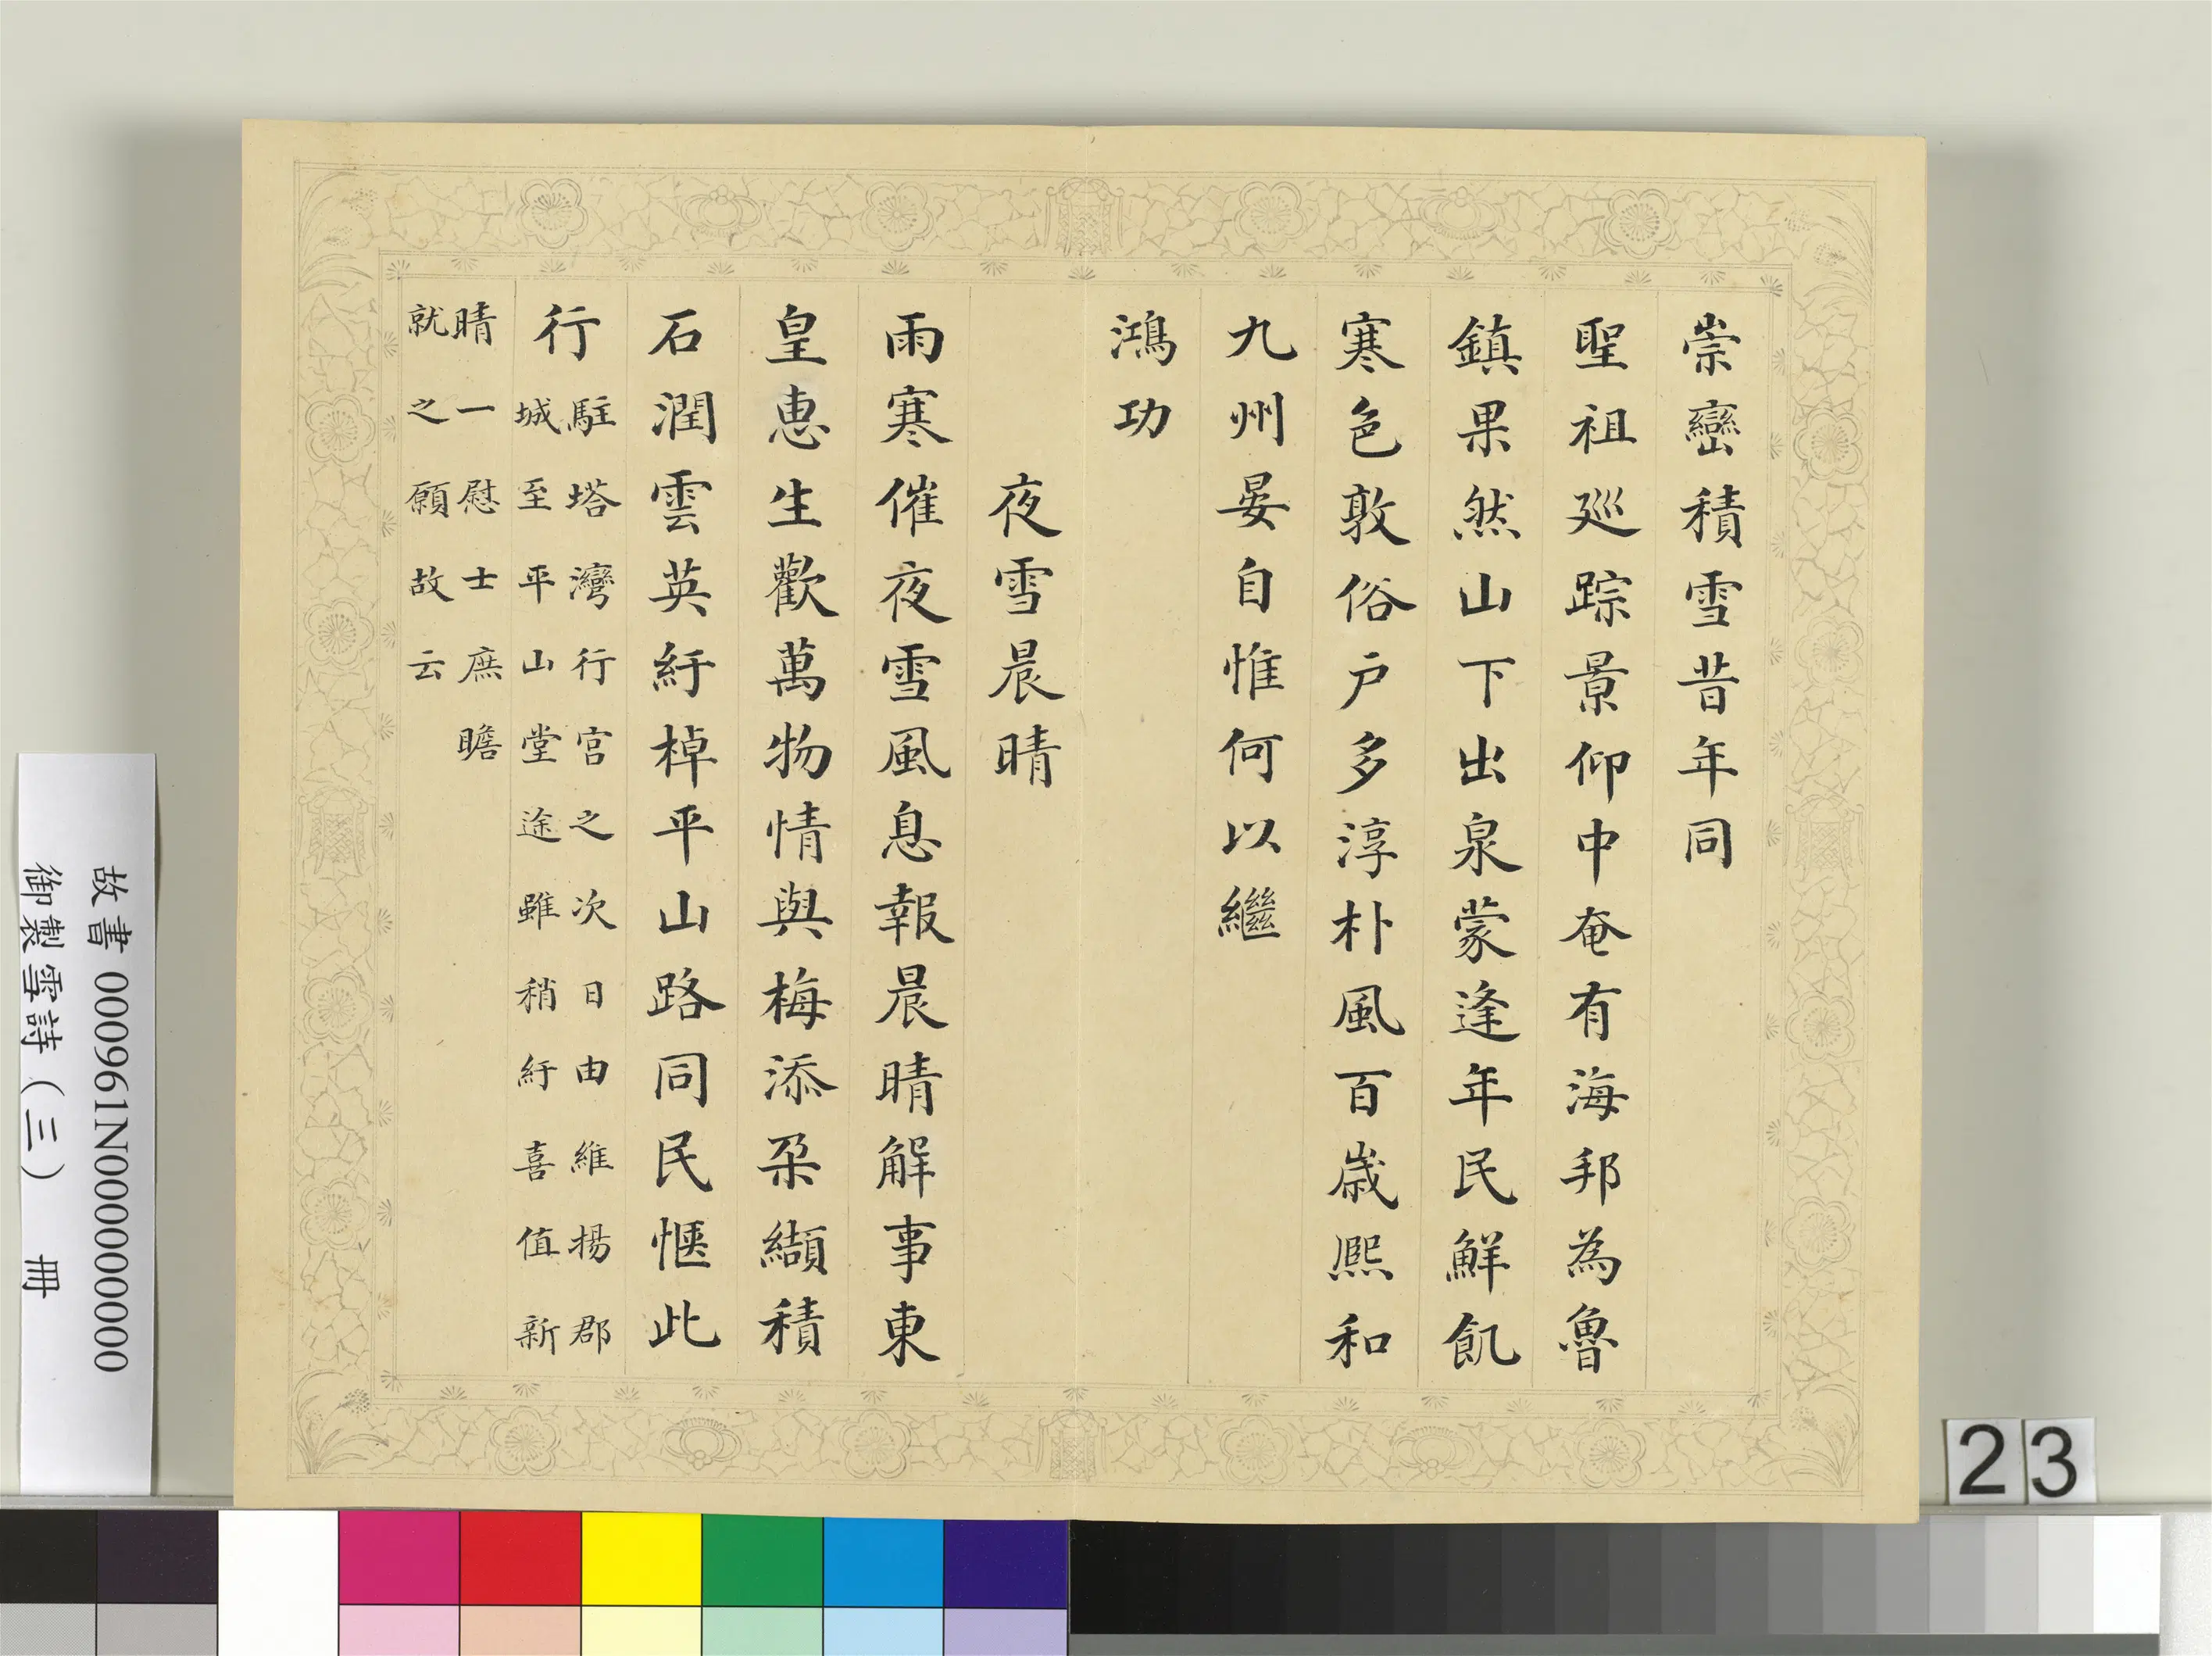 崇巒積雪昔年同
聖祖廵踪景仰中奄有海邦為魯
鎮果然山下出泉蒙逢年民鮮飢
寒色敦俗户多淳朴風百歳熈和
九州晏自惟何以繼
鴻功
夜雪晨晴
雨寒催夜雪風息報晨晴解事東
皇恵生歡萬物情與梅添朶纈積
石潤雲英紆棹平山路同民愜此
行
駐塔灣行宫之次日由維揚郡
城至平山堂途雖稍紆喜值新
晴一慰士庶瞻
就之願故云
故書 000961N000000000
御製雪詩（三） 冊
23